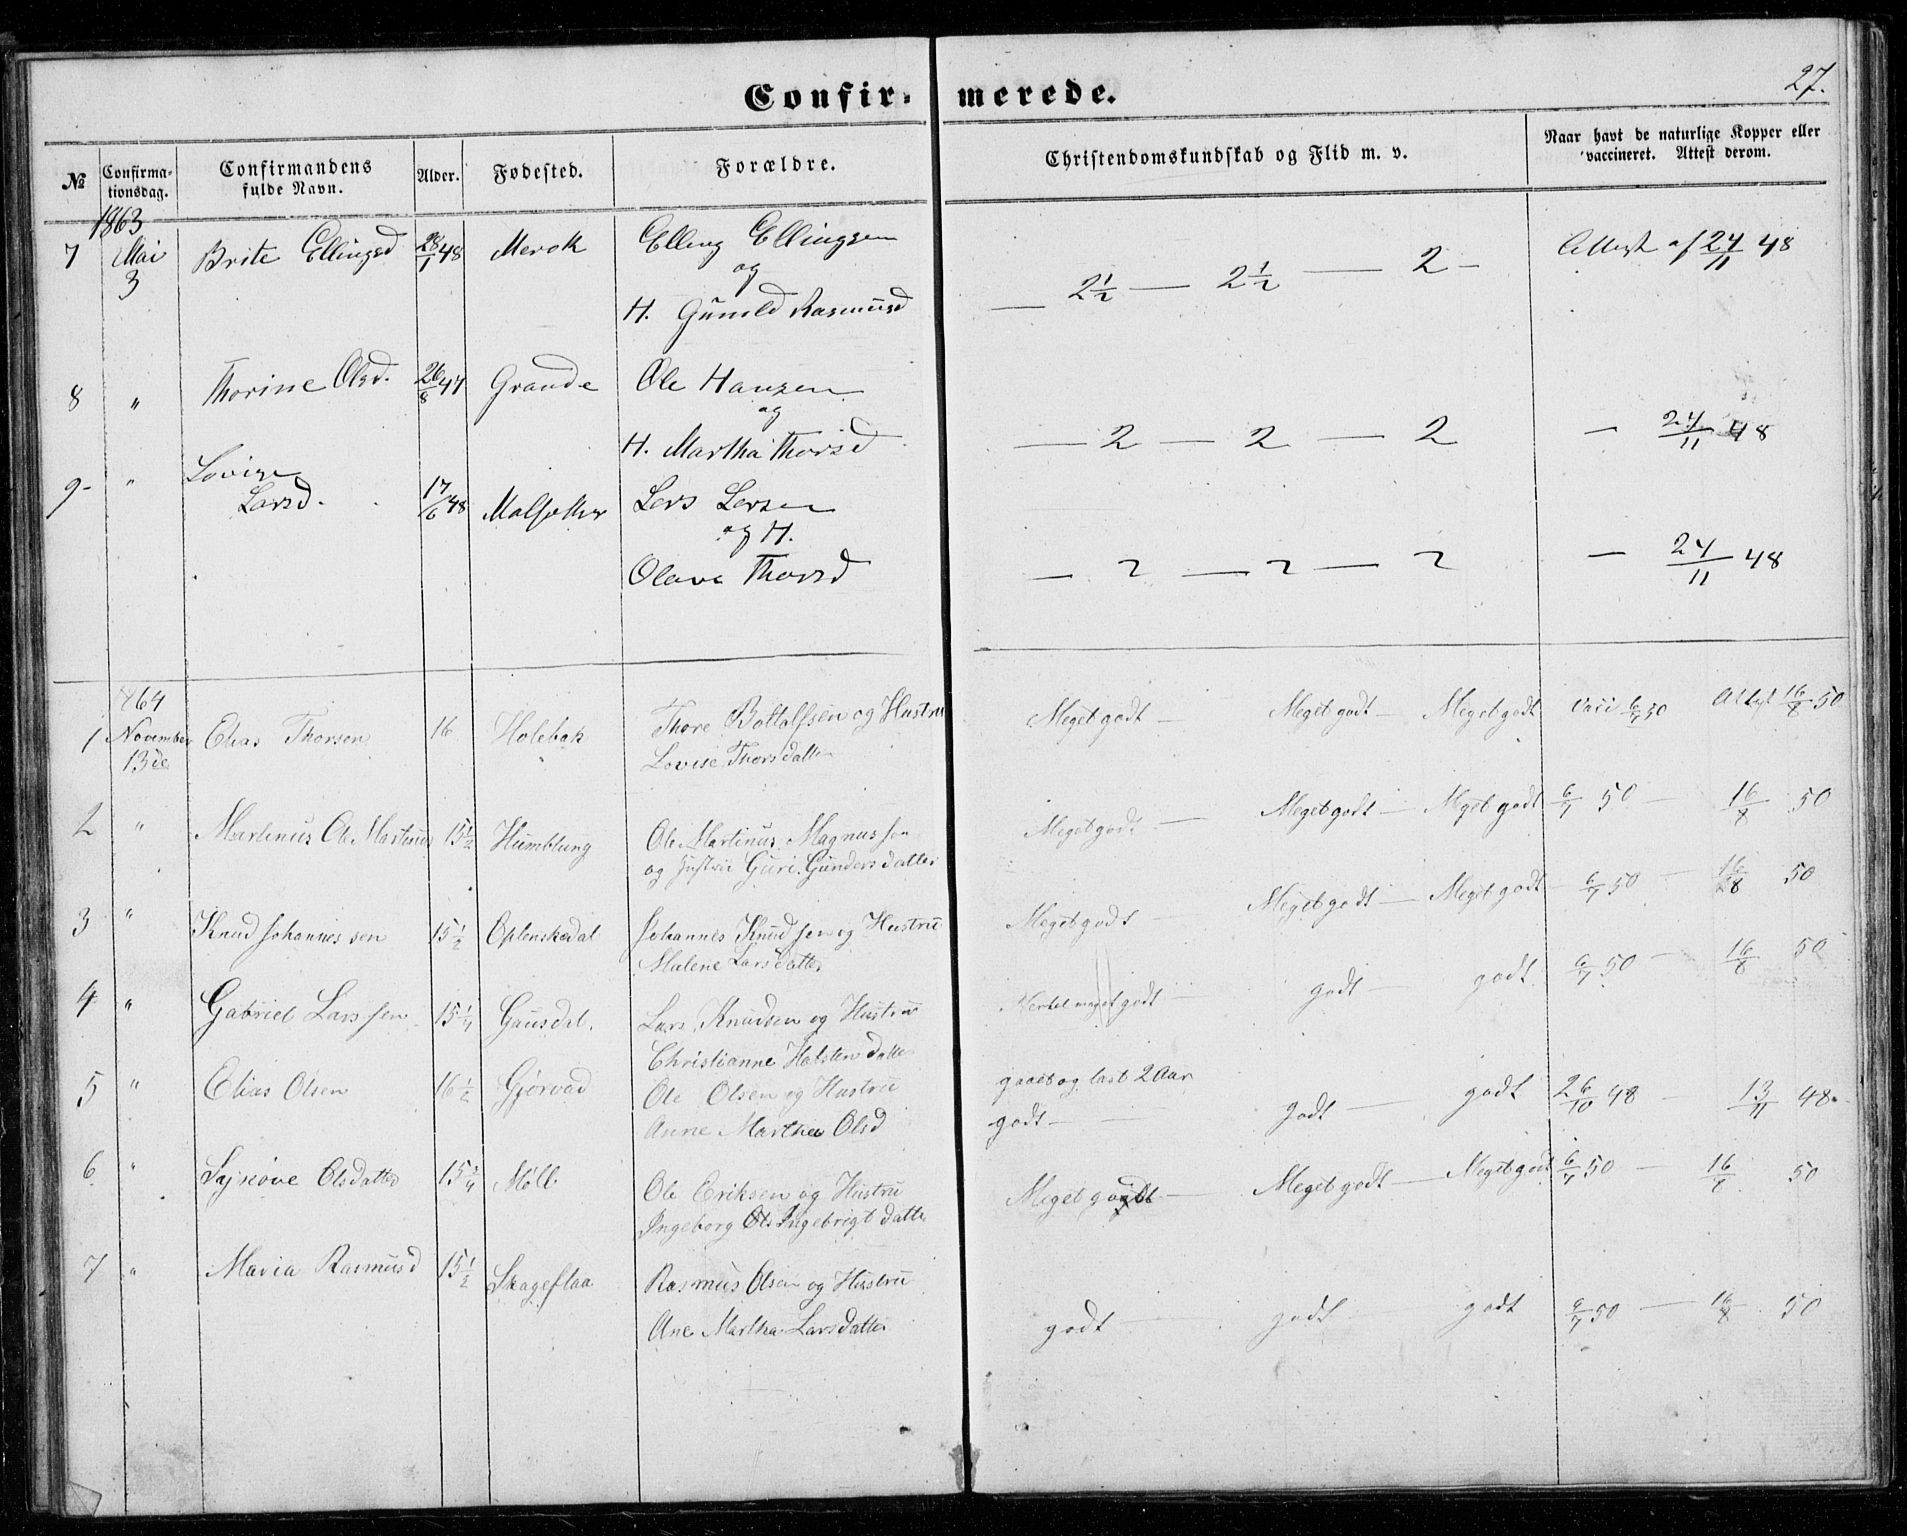 27.
Confir- merede.
No Confirma-tionsdag. Confirmandens fulde Navn. Alder. Fødested. Forældre. Christendomskundskab og Flid m. v. Naar havt de naturlige Kopper eller vaccineret. Attest derom.
1863
7 Mai 3 Brite Ellingsd 28/1 48 Merok Elling Ellingsen — 2½ — 2½ — 2 – Attest af 24/11 48
og
H. Gunild Rasmusd
8 " Thorine Olsd. 26/8 47 Grande Ole Hansen
og
H. Martha Thorsd — 2 — 2 — 2 — 24/11 48
9 – " Lovise
Larsd. 17/6 48 Lars Larsen
og H.
Olave Thorsd — 2 — 2 — 2 — 24/11 48
864
1 November 13de Elias Thorsen 16 Holebak Thore Bottolfsen og Hustru Meget godt — Meget godt — Meget godt Vacc 6/7 50 Attest 16/8 50
Lovise Thorsdatter
2 " Martinus Ol. Martinus 15½ Humblung Ole Martinus Magnussen Meget godt — Meget godt — Meget godt 6/7 50 — 16/8 50
og Hustru Guri Gundersdatter
3 " Knud Johannessen 15½ Oplenskedal Johannes Knudsen og Hustru Meget godt — Meget godt — Meget godt 6/7 50 — 16/8 50
Malene Larsdatter
4 " Gabriel Larssen 15¼ Gausdal. Lars Knudsen og Hustru meget godt — godt — godt 6/7 50 — 16/8 50
Christianne Halstensdatter
5 " Elias Olsen 16½ Gjørvad Ole Olsen og Hustru gaaet og læst 2 Aar
Anne Marthea Olsd godt — godt — godt 26/10 48 — 13/11 48.
6 " Olsdatter 15¾ Møll. Ole Eriksen og Hustru Meget godt — Meget godt — Meget godt 6/7 50 — 16/8 50
Ingeborg Ols Ingebrigtdatter
7 " Maria Rasmusd 15½ Skageflaa Rasmus Olsen og Hustru
Ane Martha Larsdatter godt — godt — godt 6/7 50 — 16/8 50